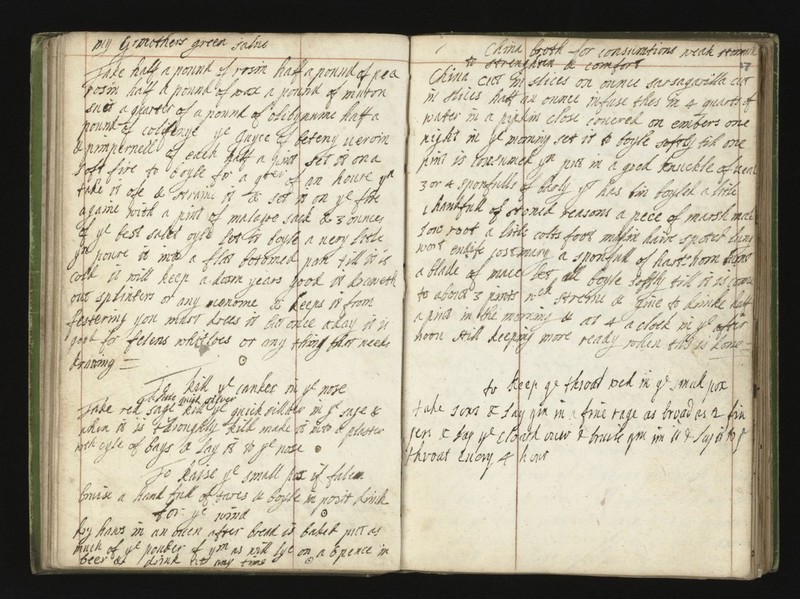 my Grmothers green salve
Take half a pound of rosin half a pound of pea
rosin half a pound of wax a pound of muton
suit a quarter of a pound of half a
pound of ye Juyce of beteny
& pimpernell of each half a pint set it on a
soft fire to boyle for a qter of an houre yn
take it ofe & straine it & set it on ye fire
againe with a pint of malegre sack & 3 ounces
of ye best salet oyle let it boyle a very litle
yn poure it into a flat bottomed till it is
cold it will keep a dosen years good it draweth
out splinters or any venome & keeps it from
festering you must dress it but once a day it is
good for felens whitloes or any thing that needs
drawing
To kill ye canker in ye nose
Take red sage kill ye quick silver in ye sage &
when it is thoroughly kild made it into a plaster
with oyle of bays & lay it to ye nose
To Raise ye small pox if falen
bruise a hand full of tares & boyle in posit drink
for ye wind
dry haws in an oven after bread is baked put as
much of ye pouder of ym as will lye on a 6 pence in
beer & drink it any time
China broth for consumtions weak stomack
to strengthen & comfort
China cut in slices on ounce sarsaparilla cut
in slices half an ounce infuse thes in 4 quarts of
water in a pipkin close covered on embers one
night in ye morning set it to boyle softly till one
pint is consumed yn put in a good knuckle of veal
3 or 4 spoonfulls of barly yt has bin boyled a litle
1 handfull of stoned reasons a piece of marsh mal
low root a litle colts foot maiden haire spoted lung
wort endife costmary a spoonful of harts horn
a blade of mace let all boyle softly till it is come
to about 3 pints then straine & give to drinke half
a pint in the morning & at 4 a clock in ye after
noon still keeping more ready when this is done
to keep ye throat well in ye small pox
take sows & lay ym in a fine rage as broad as 2 fin
gers & lay ye cloath over & bruise ym in it & lay it to ye
throat every 4 hour